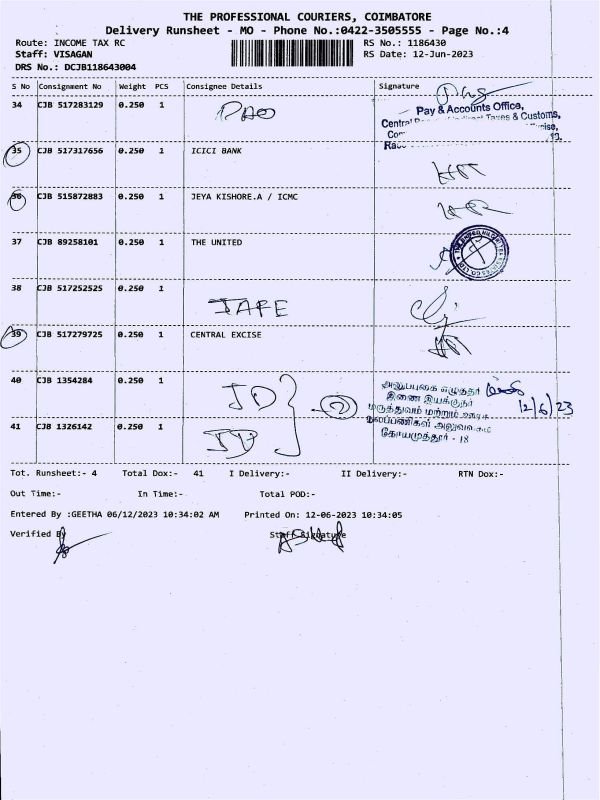 THE PROFESSIONAL COURIERS, COIMBATORE
Delivery Runsheet - MO - Phone No.:0422-3505555 - Page No.:4
Route: INCOME TAX RC RS No.: 1186430
Staff: VISAGAN RS Date: 12-Jun-2023
DRS No.: DCJB118643004
S No Consignment No Weight PCS Consignee Details Signature
34 CJB 517283129 0.250 1 PAO
Pay & Accounts Office,
Taxes & Customs,
35 CJB 517317656 0.250 1 ICICI BANK
36 CJB 515872883 0.250 1 JEYA KISHORE.A / ICMC
37 CJB 89258101 0.250 1 THE UNITED
38 CJB 517252525 0.250 1
39 CJB 517279725 0.250 1 CENTRAL EXCISE
40 CJB 1354284 0.250 1 JD
அலுவலக எழுத்தர்
இணை இயக்குநர்
மருத்துவம் மற்றும் ஊரக
நலப்பணிகள் அலுவலகம்
கோயமுத்தூர் - 18
12/6/23
2
41 CJB 1326142 0.250 1 JD
Tot. Runsheet:- 4 Total Dox:- 41 I Delivery:- II Delivery:- RTN Dox:-
Out Time:- In Time:- Total POD:-
Entered By :GEETHA 06/12/2023 10:34:02 AM Printed On: 12-06-2023 10:34:05
Verified By Staff Signature